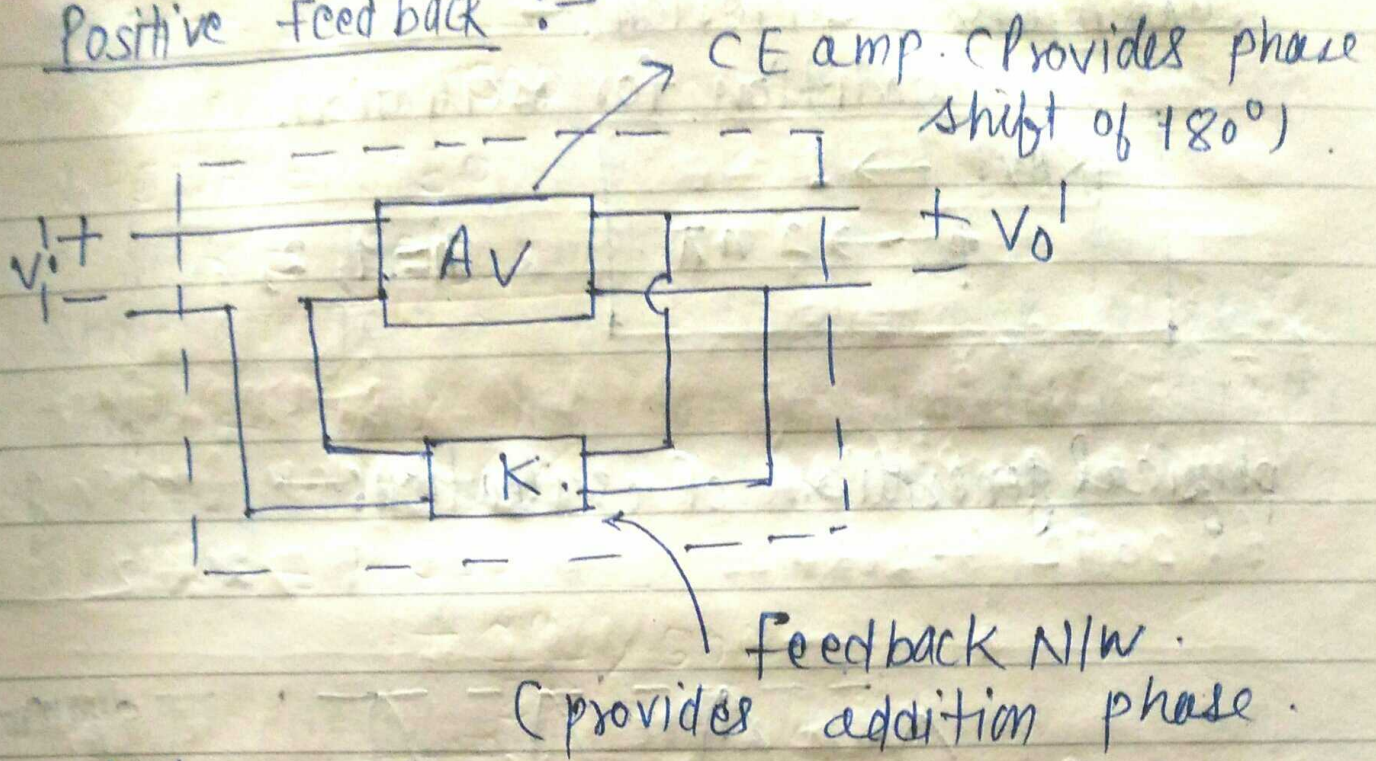 Positive feedback :-
CE amp. (Provides phase
shift of 180°)
+
Vi'
-
AV
+
Vo'
-
K.
feedback N/W.
(provides addition phase.